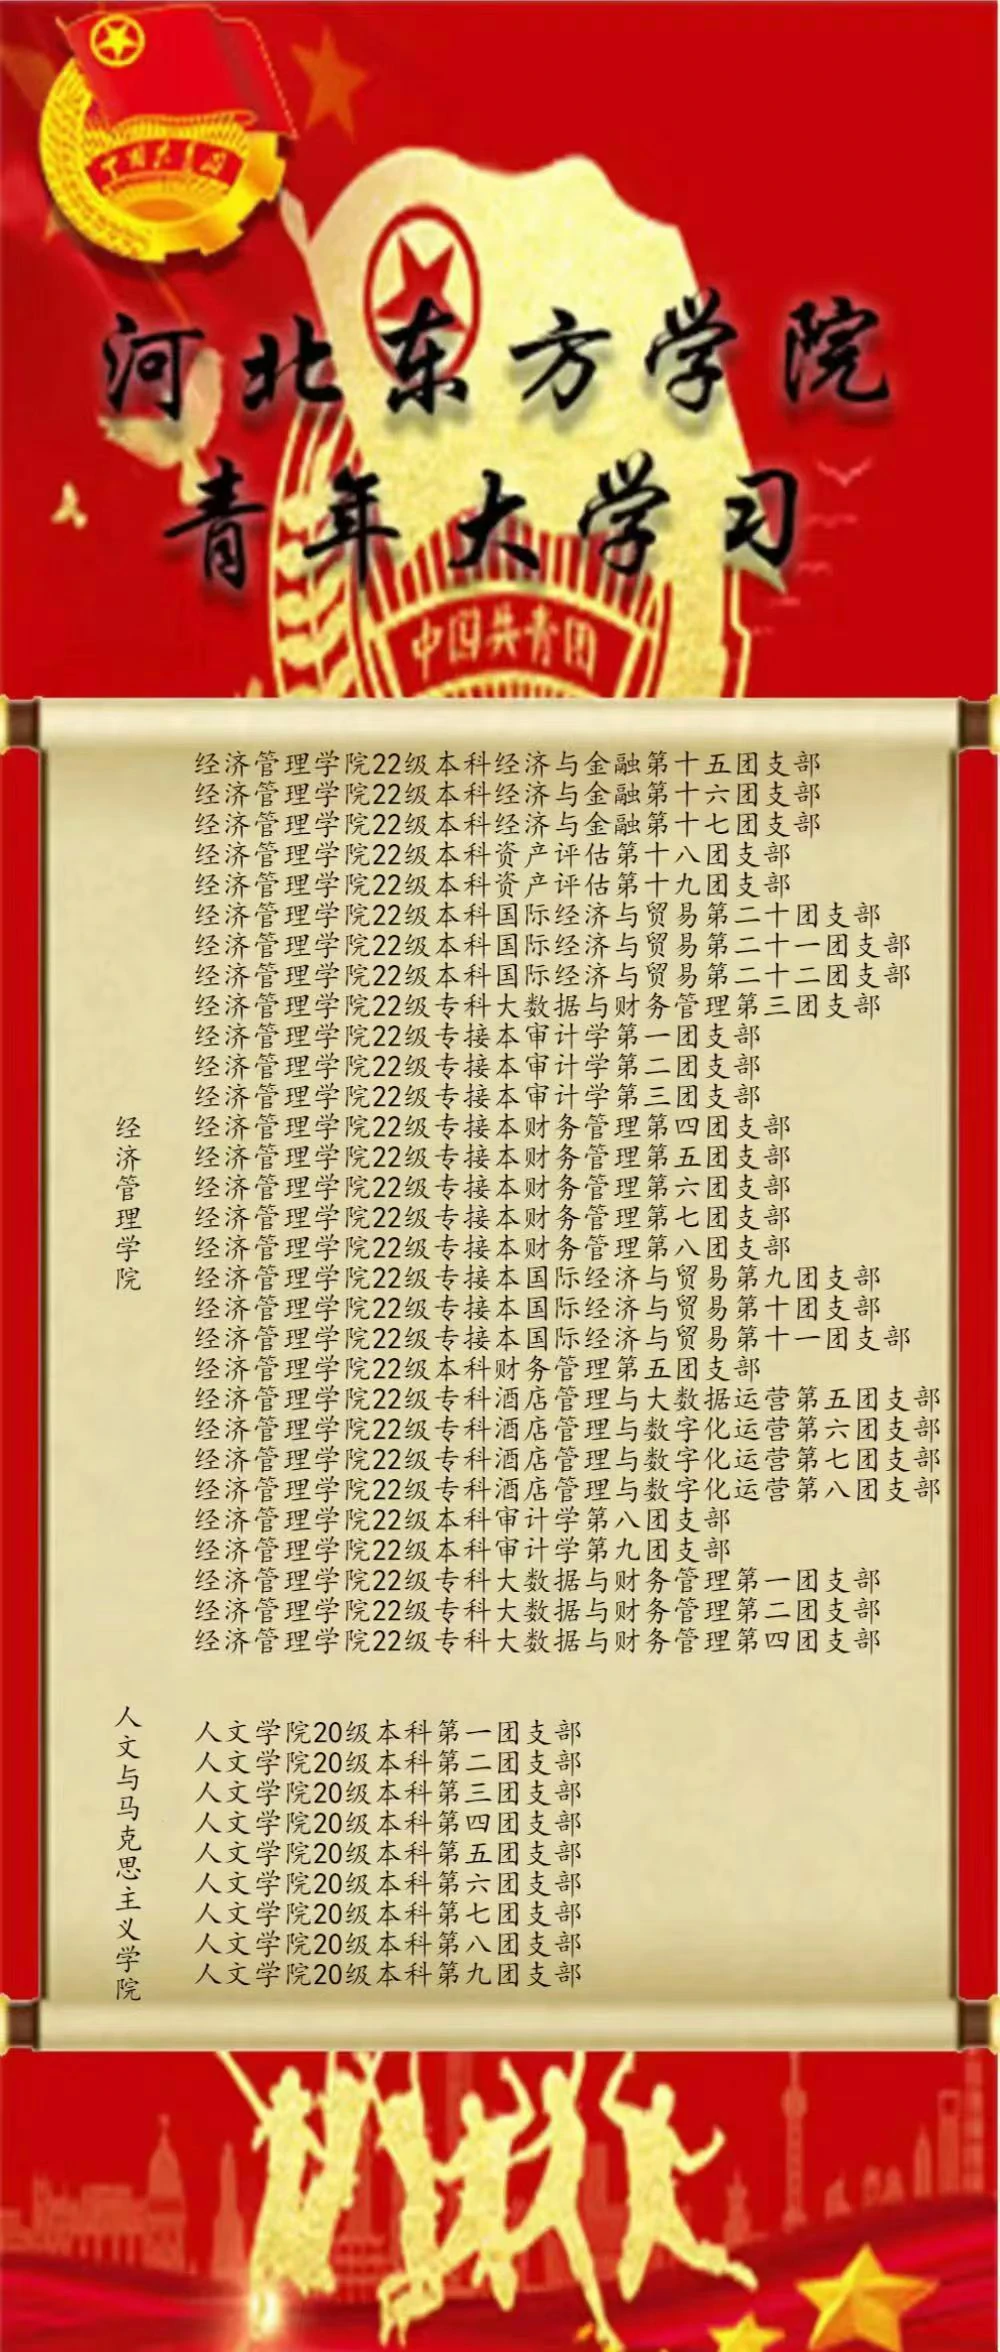 中国共青团
河北东方学院
青年大学习
中国共青团
经济管理学院
经济管理学院22级本科经济与金融第十五团支部
经济管理学院22级本科经济与金融第十六团支部
经济管理学院22级本科经济与金融第十七团支部
经济管理学院22级本科资产评估第十八团支部
经济管理学院22级本科资产评估第十九团支部
经济管理学院22级本科国际经济与贸易第二十团支部
经济管理学院22级本科国际经济与贸易第二十一团支部
经济管理学院22级本科国际经济与贸易第二十二团支部
经济管理学院22级专科大数据与财务管理第三团支部
经济管理学院22级专接本审计学第一团支部
经济管理学院22级专接本审计学第二团支部
经济管理学院22级专接本审计学第三团支部
经济管理学院22级专接本财务管理第四团支部
经济管理学院22级专接本财务管理第五团支部
经济管理学院22级专接本财务管理第六团支部
经济管理学院22级专接本财务管理第七团支部
经济管理学院22级专接本财务管理第八团支部
经济管理学院22级专接本国际经济与贸易第九团支部
经济管理学院22级专接本国际经济与贸易第十团支部
经济管理学院22级专接本国际经济与贸易第十一团支部
经济管理学院22级本科财务管理第五团支部
经济管理学院22级专科酒店管理与大数据运营第五团支部
经济管理学院22级专科酒店管理与数字化运营第六团支部
经济管理学院22级专科酒店管理与数字化运营第七团支部
经济管理学院22级专科酒店管理与数字化运营第八团支部
经济管理学院22级本科审计学第八团支部
经济管理学院22级本科审计学第九团支部
经济管理学院22级专科大数据与财务管理第一团支部
经济管理学院22级专科大数据与财务管理第二团支部
经济管理学院22级专科大数据与财务管理第四团支部
人文与马克思主义学院
人文学院20级本科第一团支部
人文学院20级本科第二团支部
人文学院20级本科第三团支部
人文学院20级本科第四团支部
人文学院20级本科第五团支部
人文学院20级本科第六团支部
人文学院20级本科第七团支部
人文学院20级本科第八团支部
人文学院20级本科第九团支部